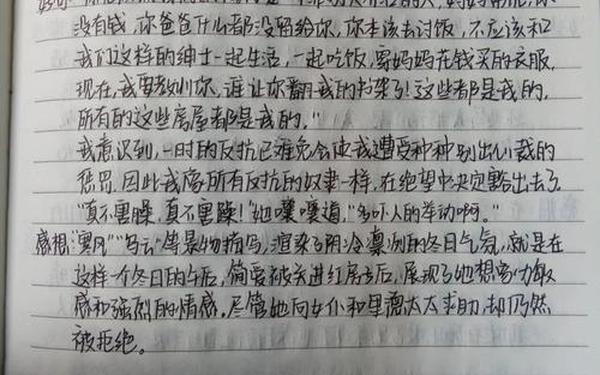 没有钱,你爸爸什么都没留给你,你本该去讨饭,不应该和
我们这样的绅士一起生活,一起吃饭,要妈妈花钱买的衣服.
现在,我要教训你,谁让你翻我的书架了!这些都是我的,
所有的这些房屋都是我的."
我意识到,一时的反抗已难免会使我遭受种种别出心裁的
惩罚.因此我像所有反抗的奴隶一样,在绝望中决定豁出去了.
"真不害臊,真不害臊!"她嚷嚷道,"多吓人的举动啊."
感想:"寒风""乌云"等景物描写,渲染了阴冷凛冽的冬日气氛,就是在
这样一个冬日的午后,简爱被关进红房子后,展现了她想象力敏
感和强烈的情感,尽管她向女仆和里德太太求助,却仍然
被拒绝。